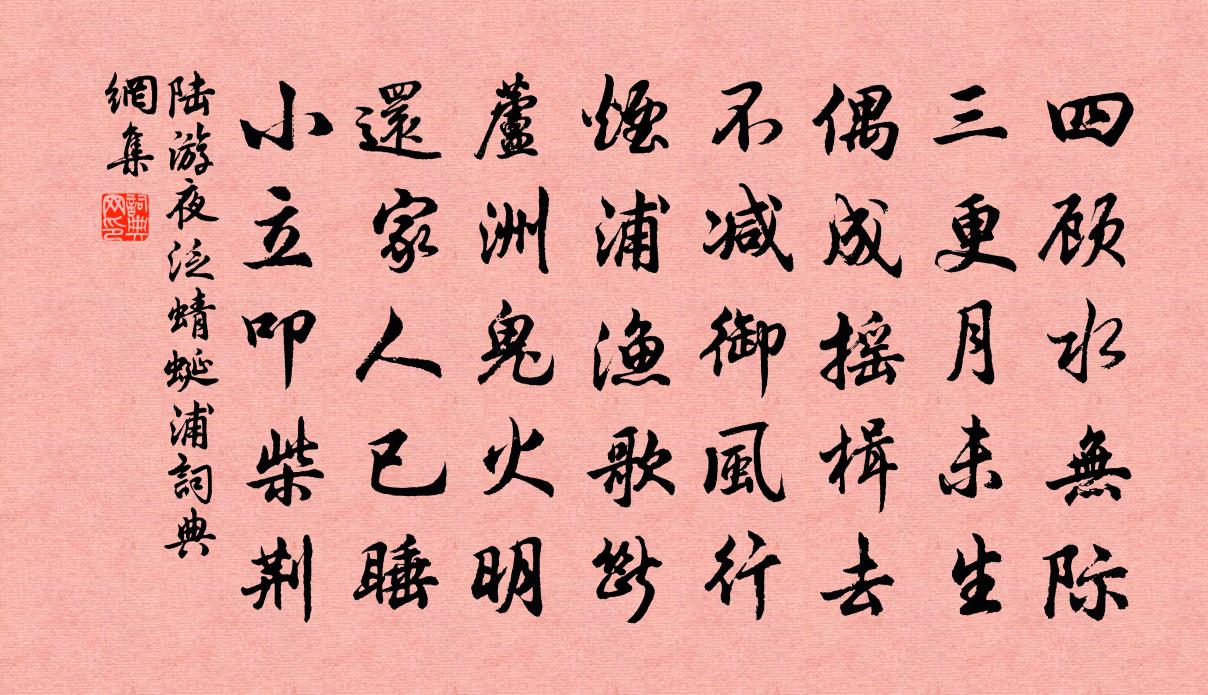 四顾水無际
三更月未生
偶成摇楫去
不减御風行
煙浦漁歌斷
蘆洲鬼火明
還家人已睡
小立叩柴荆
陆游夜泛蜻蜓浦詞典
網集
詞典
网印